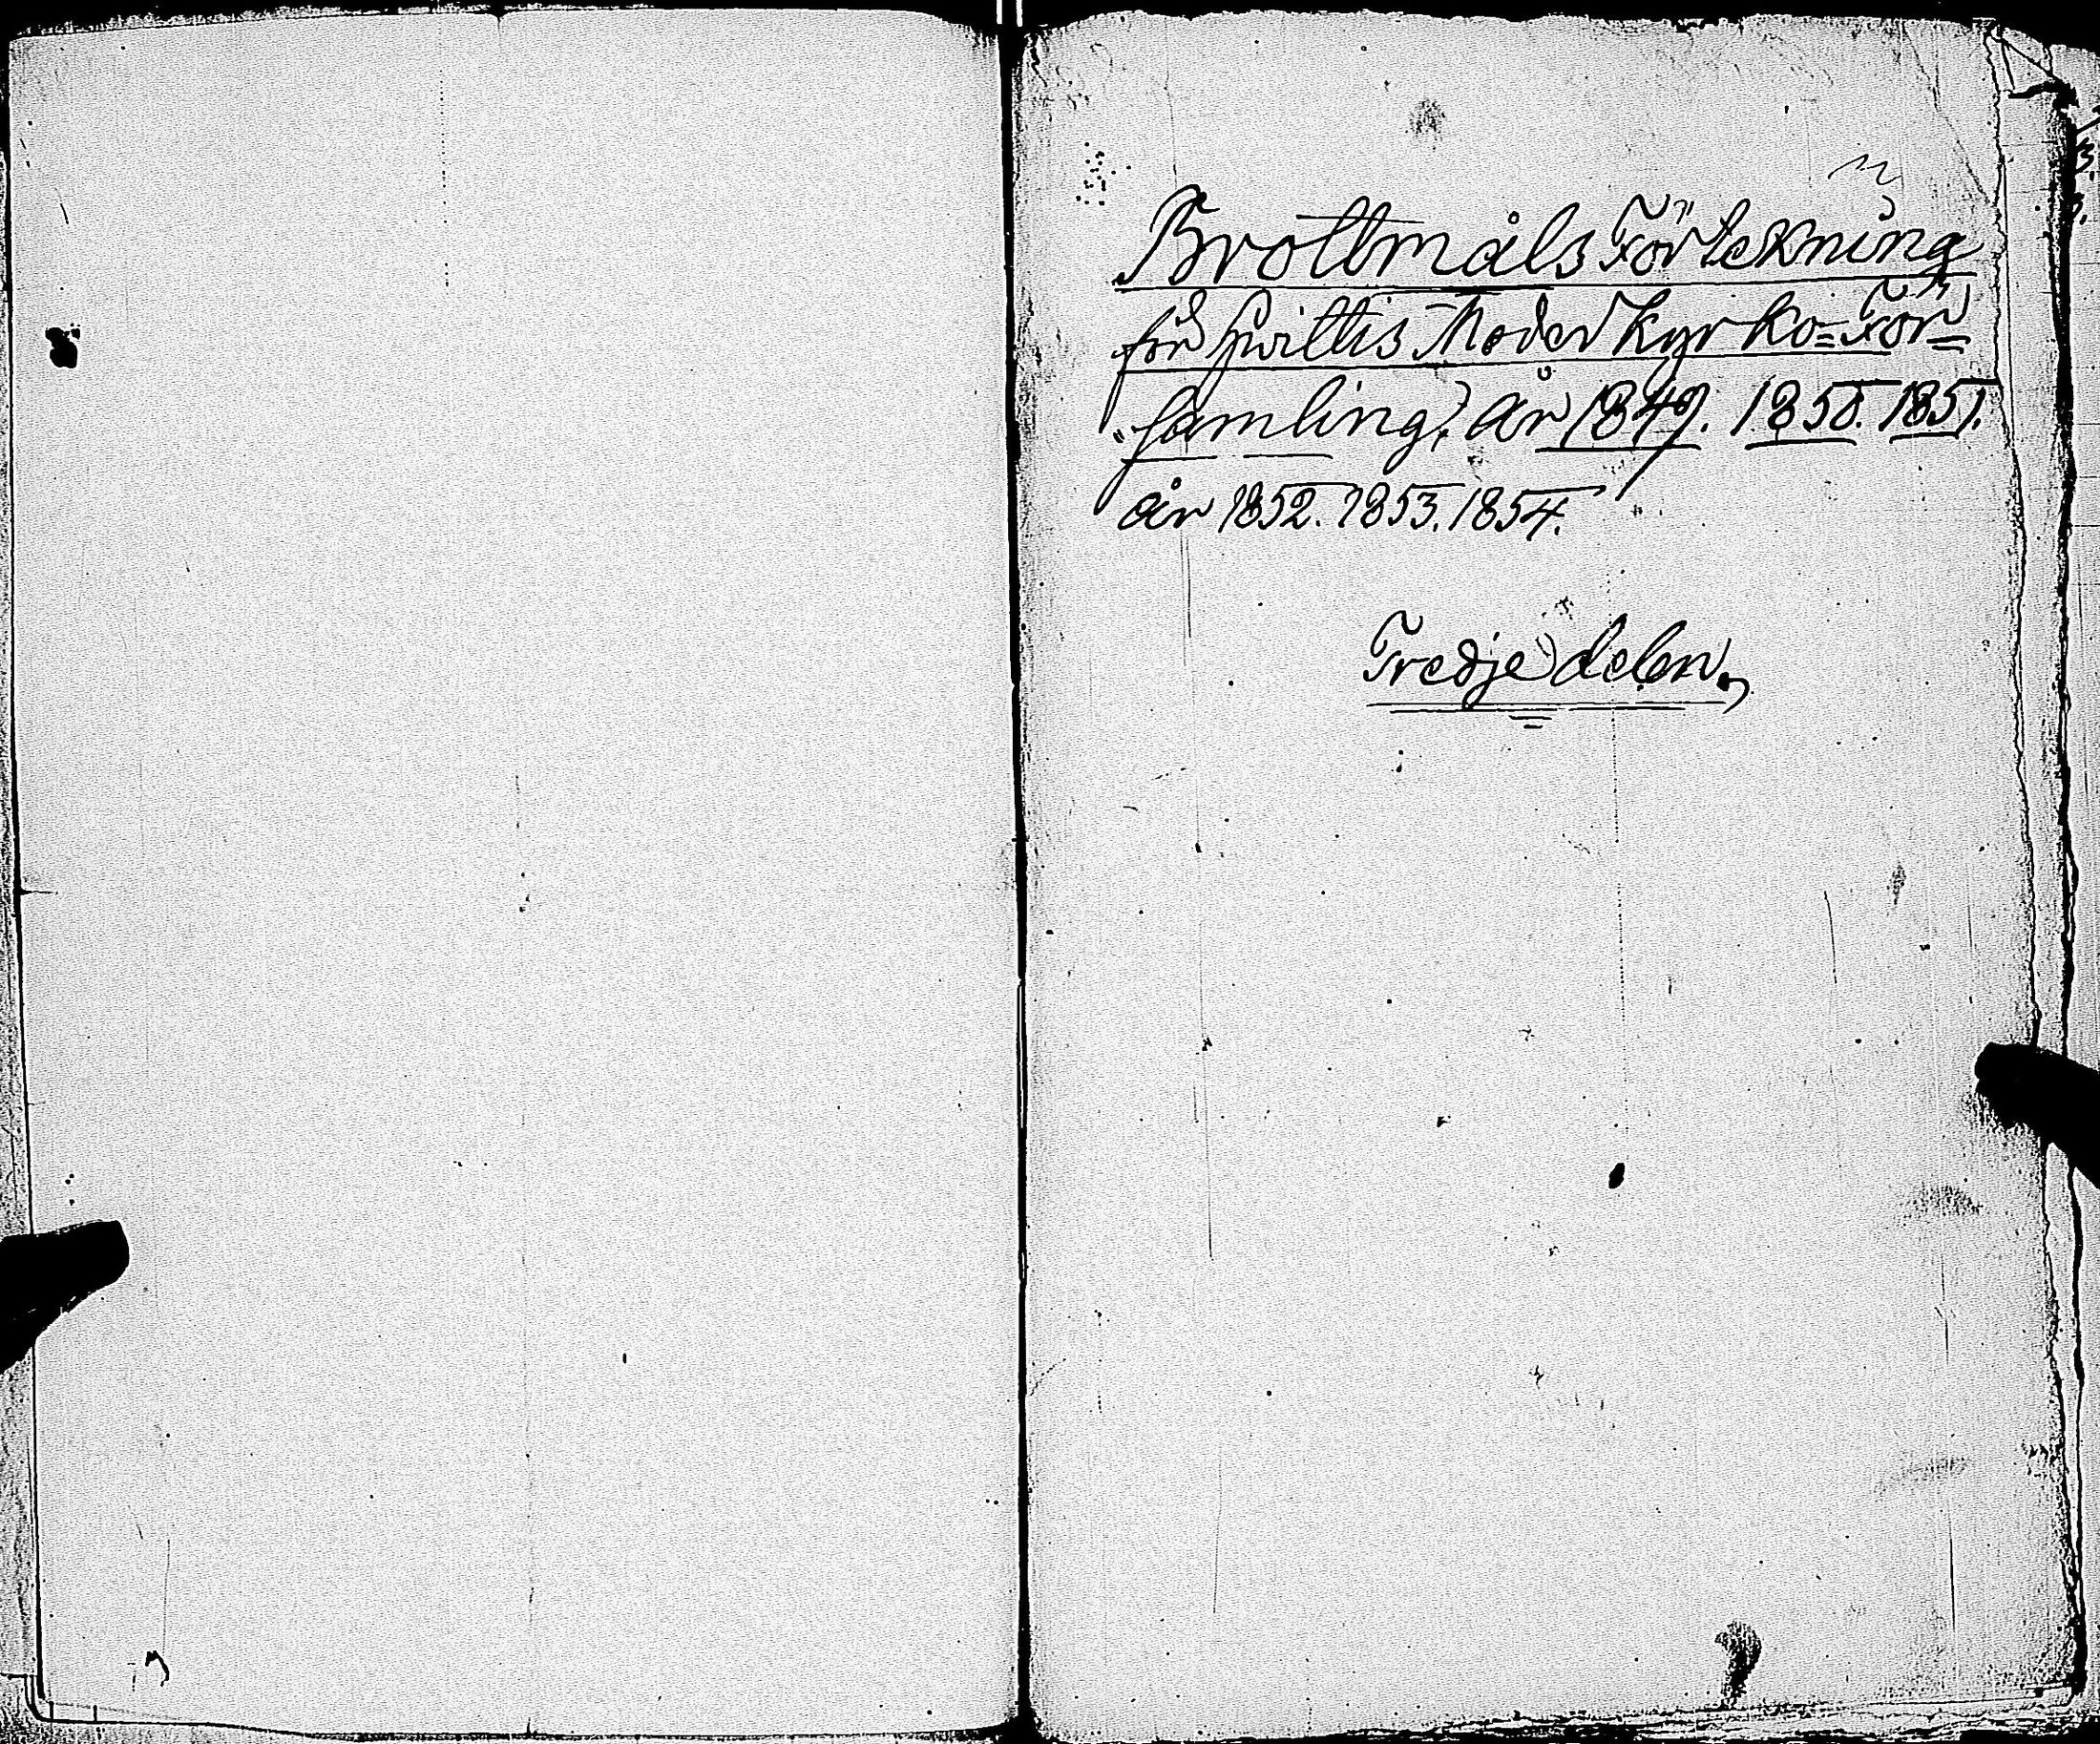 Brottmåls Förtekning
för Hvittis Moder Kyrko=För=
samling, år 1849. 1850. 1851.
år 1852. 1853. 1854.
Tredje delen,